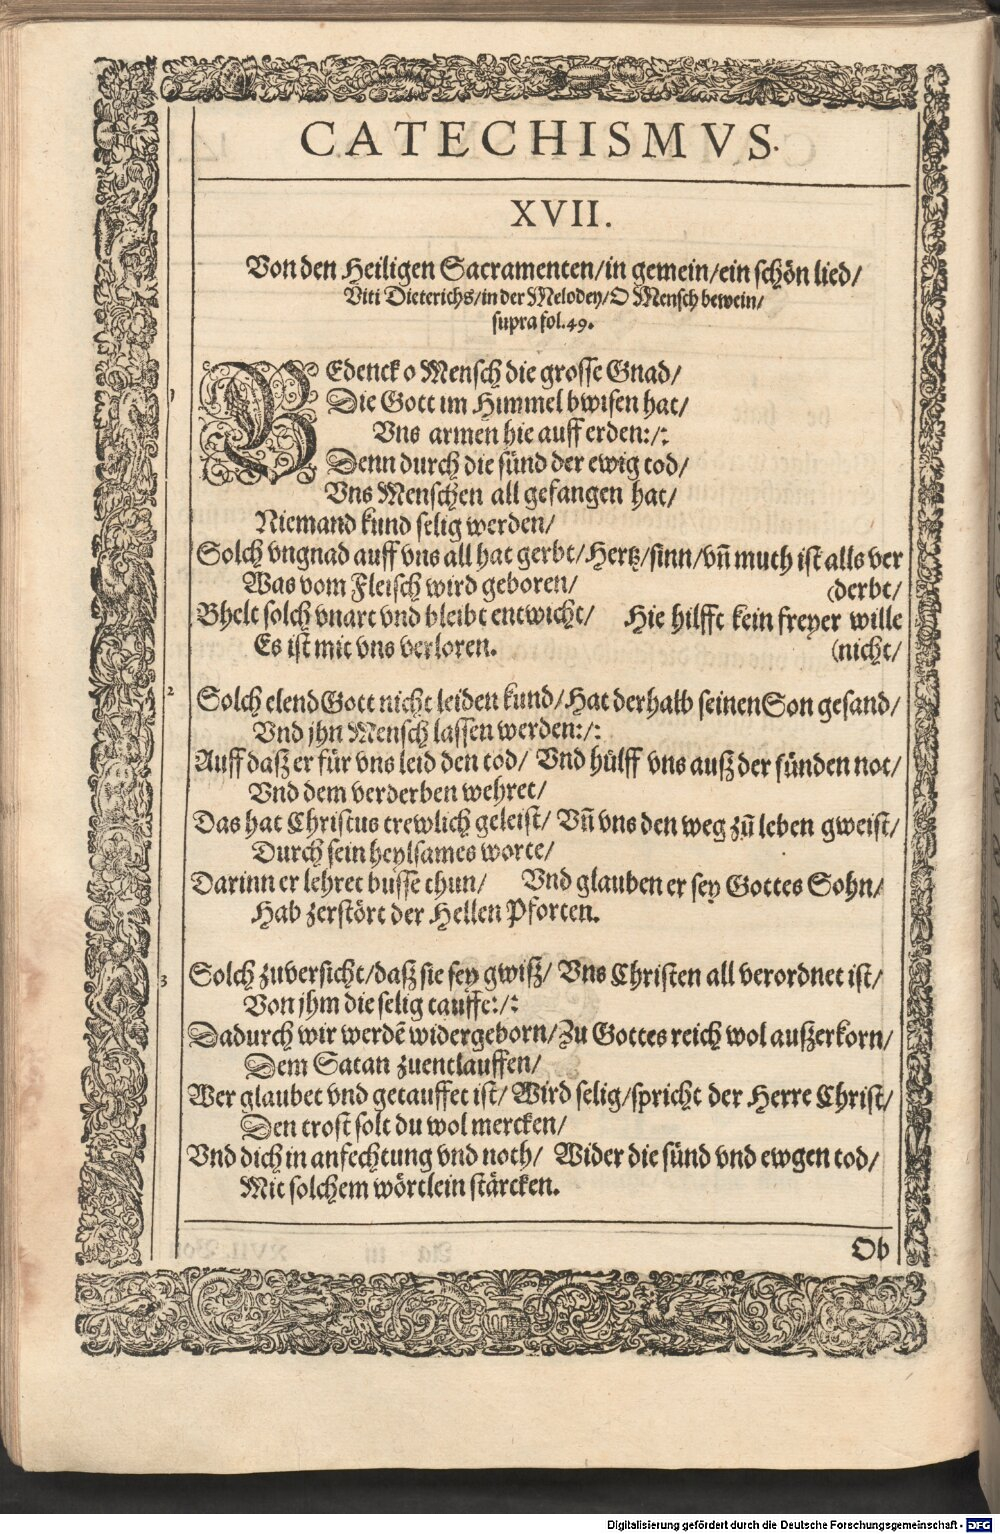 CATECHISMVS.
XVII.
Von den Heiligen Sacramenten/in gemein/ein schön lied/
Viti Dieterichs/in der Melodey/O Mensch bewein/
supra fol.49.
1
BEdenck o Mensch die grosse Gnad/
Die Gott im Himmel bwisen hat/
Vns armen hie auff erden:/:
Denn durch die sünd der ewig tod/
Vns Menschen all gefangen hat/
Niemand kund selig werden/
Solch vngnad auff vns all hat gerbt/ Hertz/sinn/vñ muth ist alls ver
Was vom Fleisch wird geboren/ (derbt/
Bhelt solch vnart vnd bleibt entwicht/ Hie hilfft kein freyer wille
Es ist mit vns verloren. (nicht/
2 Solch elend Gott nicht leiden kund/Hat derhalb seinen Son gesand/
Vnd jhn Mensch lassen werden:/:
Auff daß er für vns leid den tod/ Vnd hülff vns auß der sünden not/
Vnd dem verderben wehret/
Das hat Christus trewlich geleist/ Vñ vns den weg zů leben gweist/
Durch sein heylsames worte/
Darinn er lehret busse thun/ Vnd glauben er sey Gottes Sohn/
Hab zerstört der Hellen Pforten.
3 Solch zuversicht/daß sie sey gwiß/ Vns Christen all verordnet ist/
Von jhm die selig tauffe:/:
Dadurch wir werdē widergeborn/Zu Gottes reich wol außerkorn/
Dem Satan zuentlauffen/
Wer glaubet vnd getauffet ist/ Wird selig/spricht der Herre Christ/
Den trost solt du wol mercken/
Vnd dich in anfechtung vnd noth/ Wider die sünd vnd ewgen tod/
Mit solchem wörtlein stärcken.
Ob
Digitalisierung gefördert durch die Deutsche Forschungsgemeinschaft - DFG